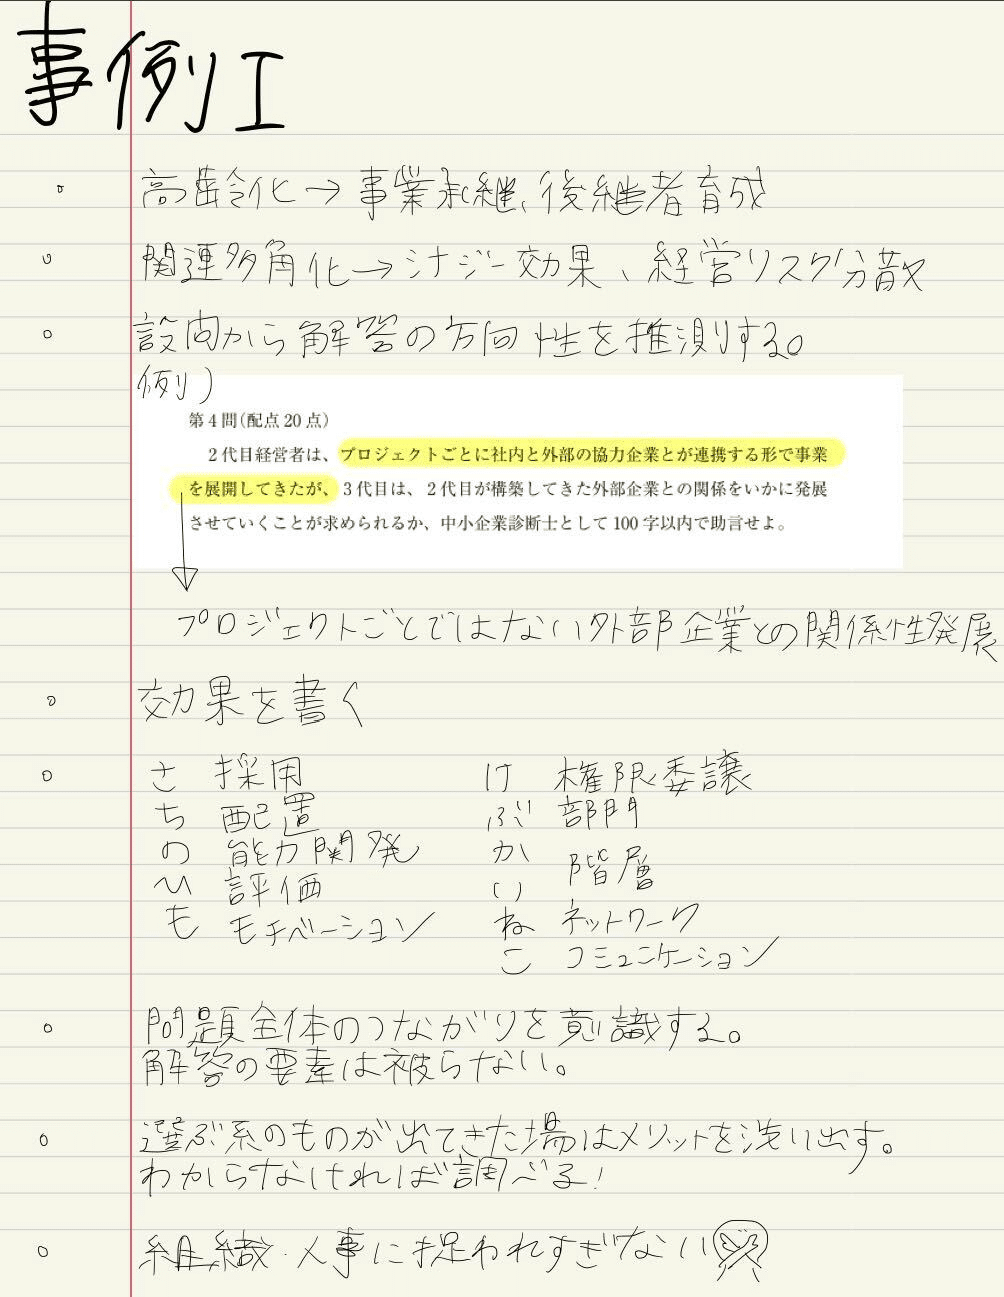 事例I
高齢化→事業承継、後継者育成
関連多角化→シナジー効果、経営リスク分散
設問から解答の方向性を推測する。
例)
第4問(配点20点)
2代目経営者は、プロジェクトごとに社内と外部の協力企業とが連携する形で事業
を展開してきたが、3代目は、2代目が構築してきた外部企業との関係をいかに発展
させていくことが求められるか、中小企業診断士として100字以内で助言せよ。
プロジェクトごとではない外部企業との関係性発展
効果を書く
さ 採用 け 権限委譲
ち 配置 ぶ 部門
の 能力開発 か 階層
ひ 評価 い
も モチベーション ね ネットワーク
こ コミュニケーション
問題全体のつながりを意識する。
解答の要素は被らない。
選ぶ系のものが出てきた場はメリットを洗い出す。
わからなければ調べる!
組織・人事に捉われすぎない